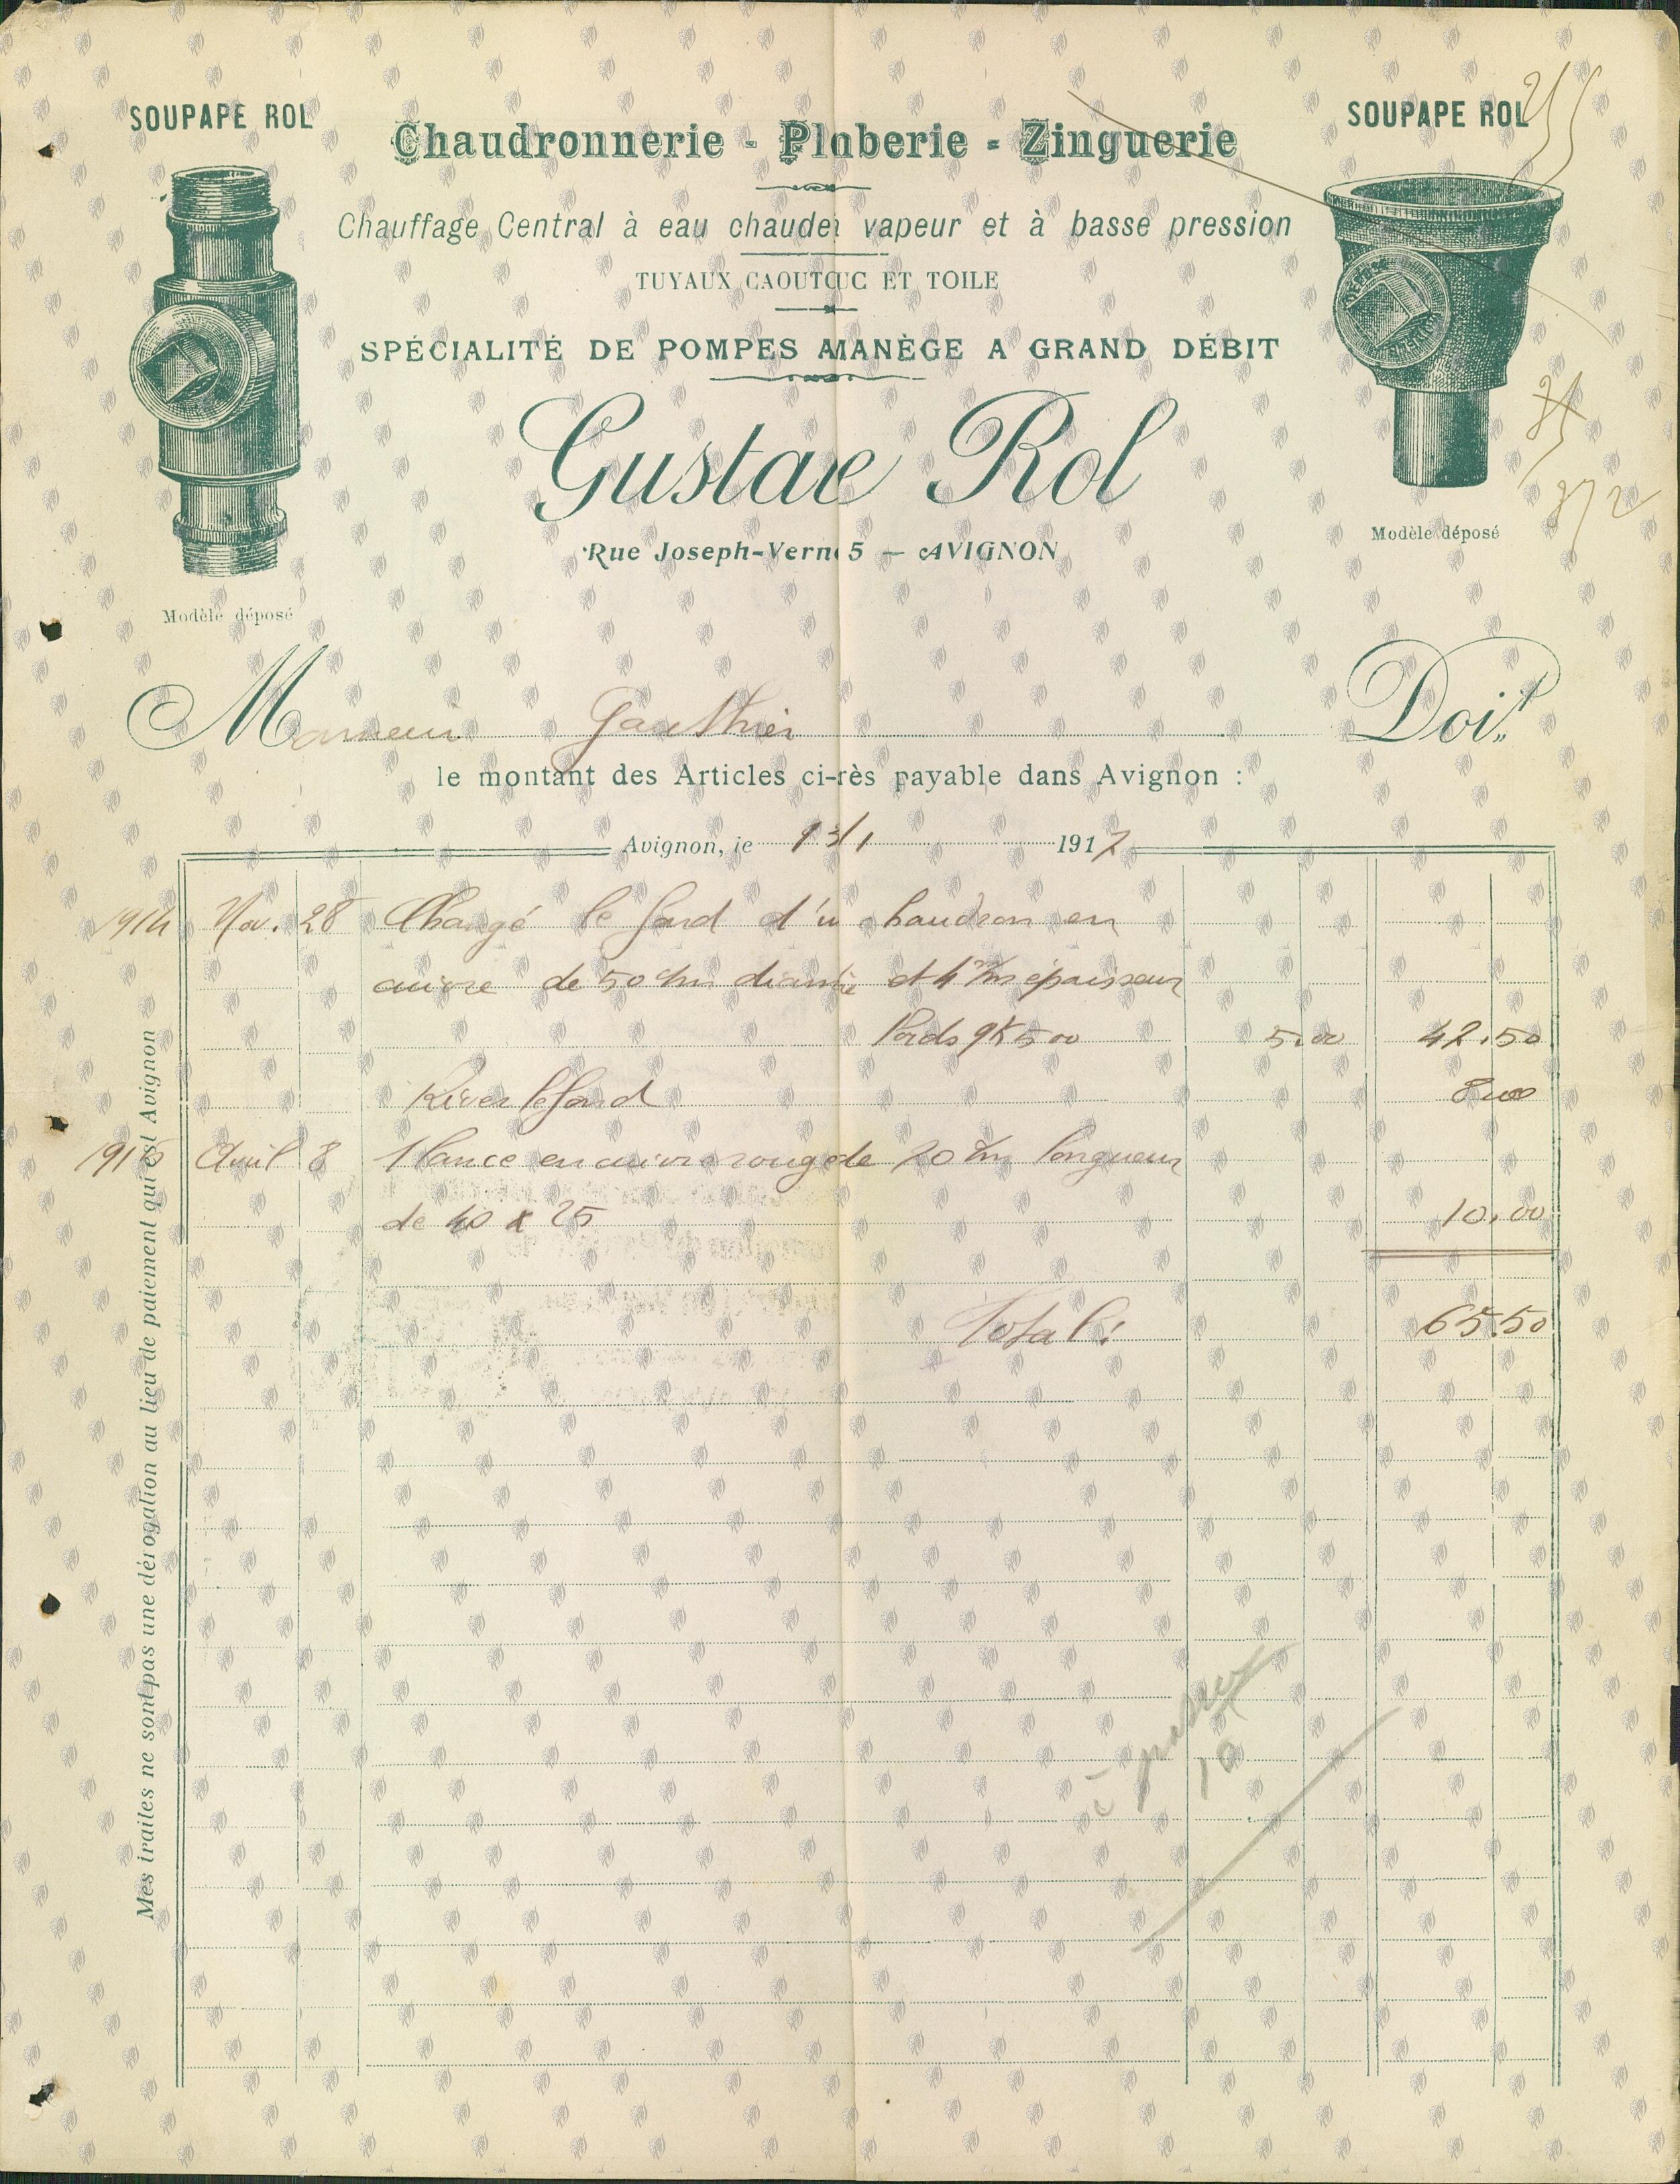 SOUPAPE ROL
SOUPAPE ROL
Chaudronnerie - Ploberie - Zinguerie
Chauffage Central à eau chaude vapeur et à basse pression
TUYAUX CAOUTCUC ET TOILE
SPÉCIALITÉ DE POMPES MANÈGE A GRAND DÉBIT
Gustave Rol
Rue Joseph-Vern 5 — AVIGNON
Modèle déposé
Modèle déposé
Monsieur Gauthier Doit
le montant des Articles ci-rès payable dans Avignon :
Avignon, le 13/1 1917
1914 Nov. 28 Changé le fond d'un chaudron en
cuivre de 50 c/m diamètre et 4 m/m épaisseur
Poids 9K500 5.00 47.50
River le fond 8.00
1916 Avril 8 1 lance en cuivre rouge de 20 c/m longueur
de 40 x 25 10.00
Total : 65.50
Mes traites ne sont pas une dérogation au lieu de paiement qui est Avignon
à passer
10